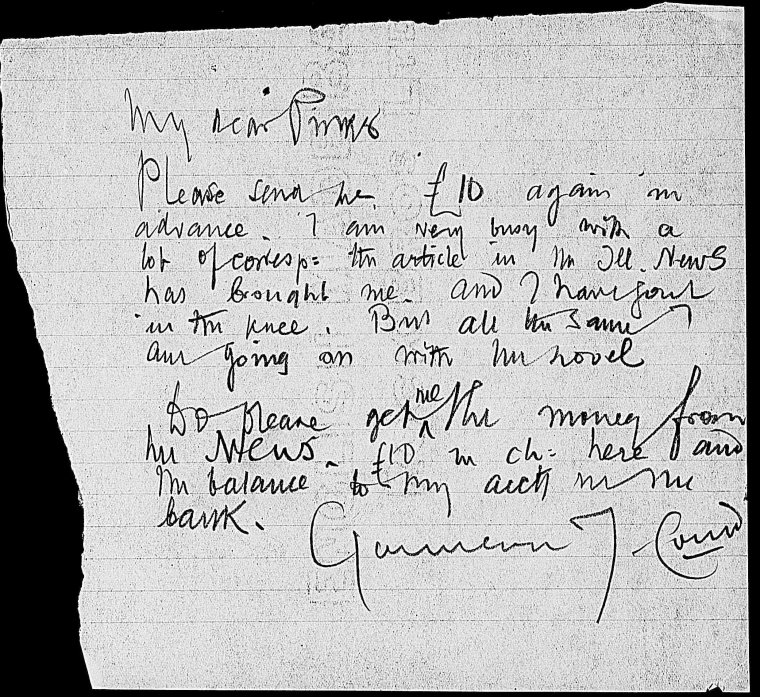 My dear Pinker
Please send me £10 again in
advance. I am very busy with a
lot of corresp: the article in the Ill. News
has brought me. and I have gout
in the knee. But all the same I
am going on with the novel
Do please get me the money from
the News. £10 in ch: here and
the balance to my acct in the
bank.
J. Conrad